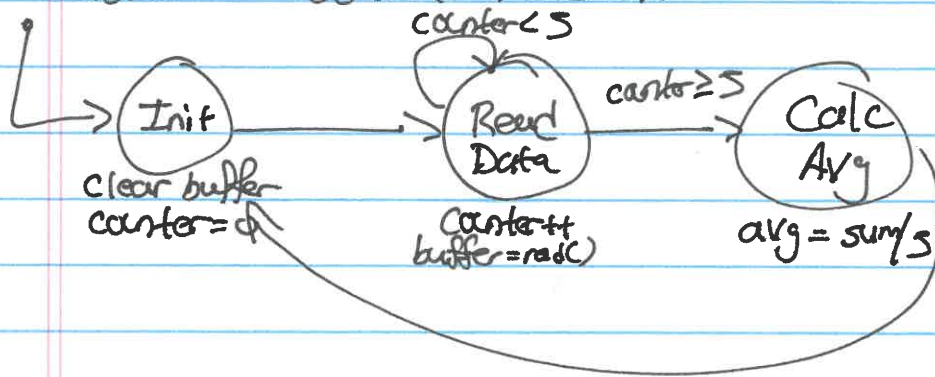 counter < 5
Init
Read
Data
counter ≥ 5
Calc
Avg
clear buffer
counter = 0
counter++
buffer = read()
avg = sum/5